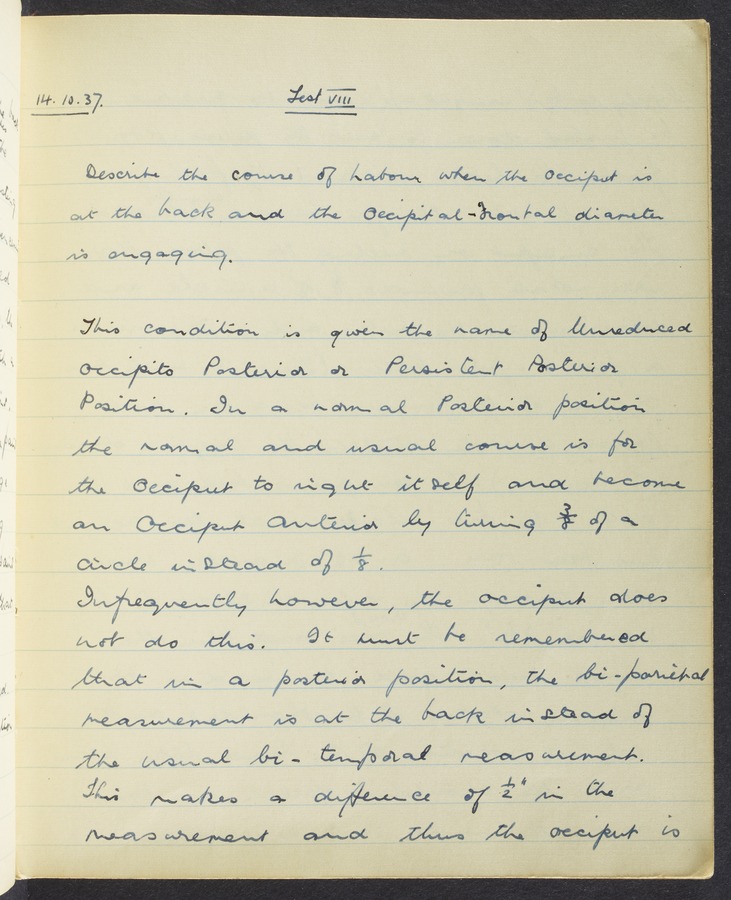 14.10.37. Test VIII
Describe the course of Labour when the Occiput is
at the back and the Occipital-Frontal diameter
is engaging.
This condition is given the name of Unreduced
Occipito Posterior or Persistent Posterior
Position. In a normal Posterior position
the normal and usual course is for
the Occiput to right itself and become
an Occiput Anterior by turning 3/8 of a
circle instead of 1/8.
Infrequently however, the occiput does
not do this. It must be remembered
that in a posterior position, the bi-parietal
measurement is at the back instead of
the usual bi-temporal measurement.
This makes a difference of 1/2" in the
measurement and thus the occiput is